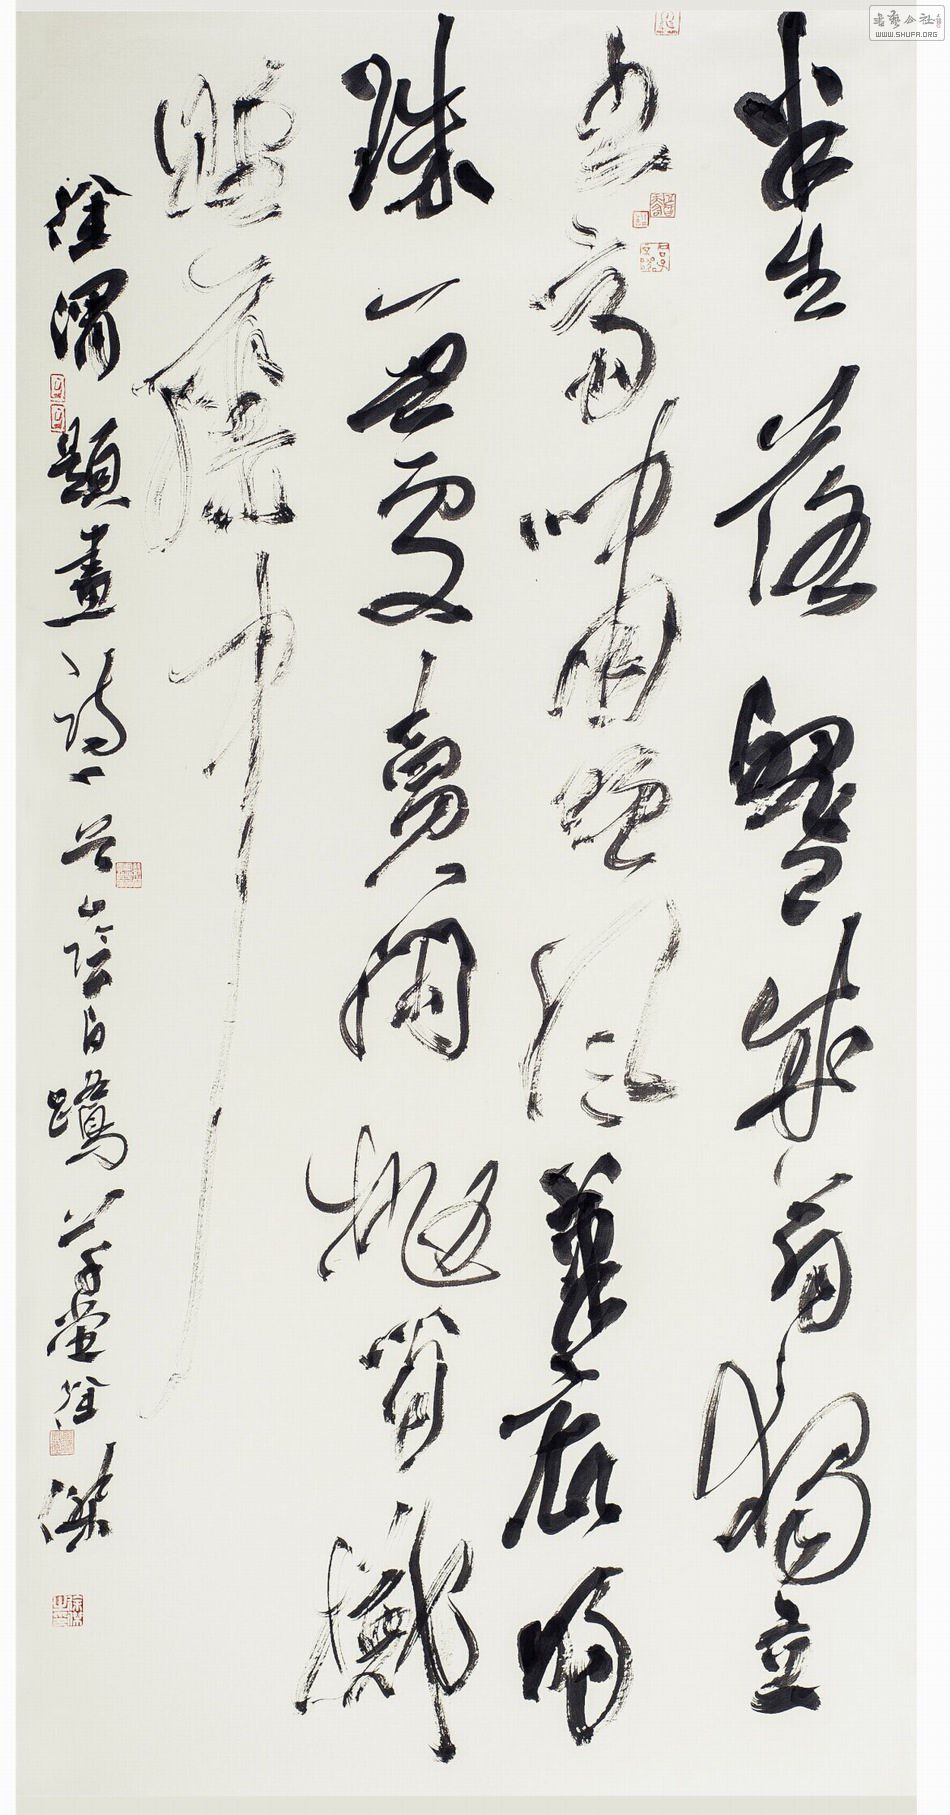 半生落魄已成翁獨立
書齋嘯晚風筆底明
珠無處賣閑拋閑擲
野藤中
徐渭題畫詩一首山陰白鷺草堂徐傑
書藝公社
WWW.SHUFA.ORG